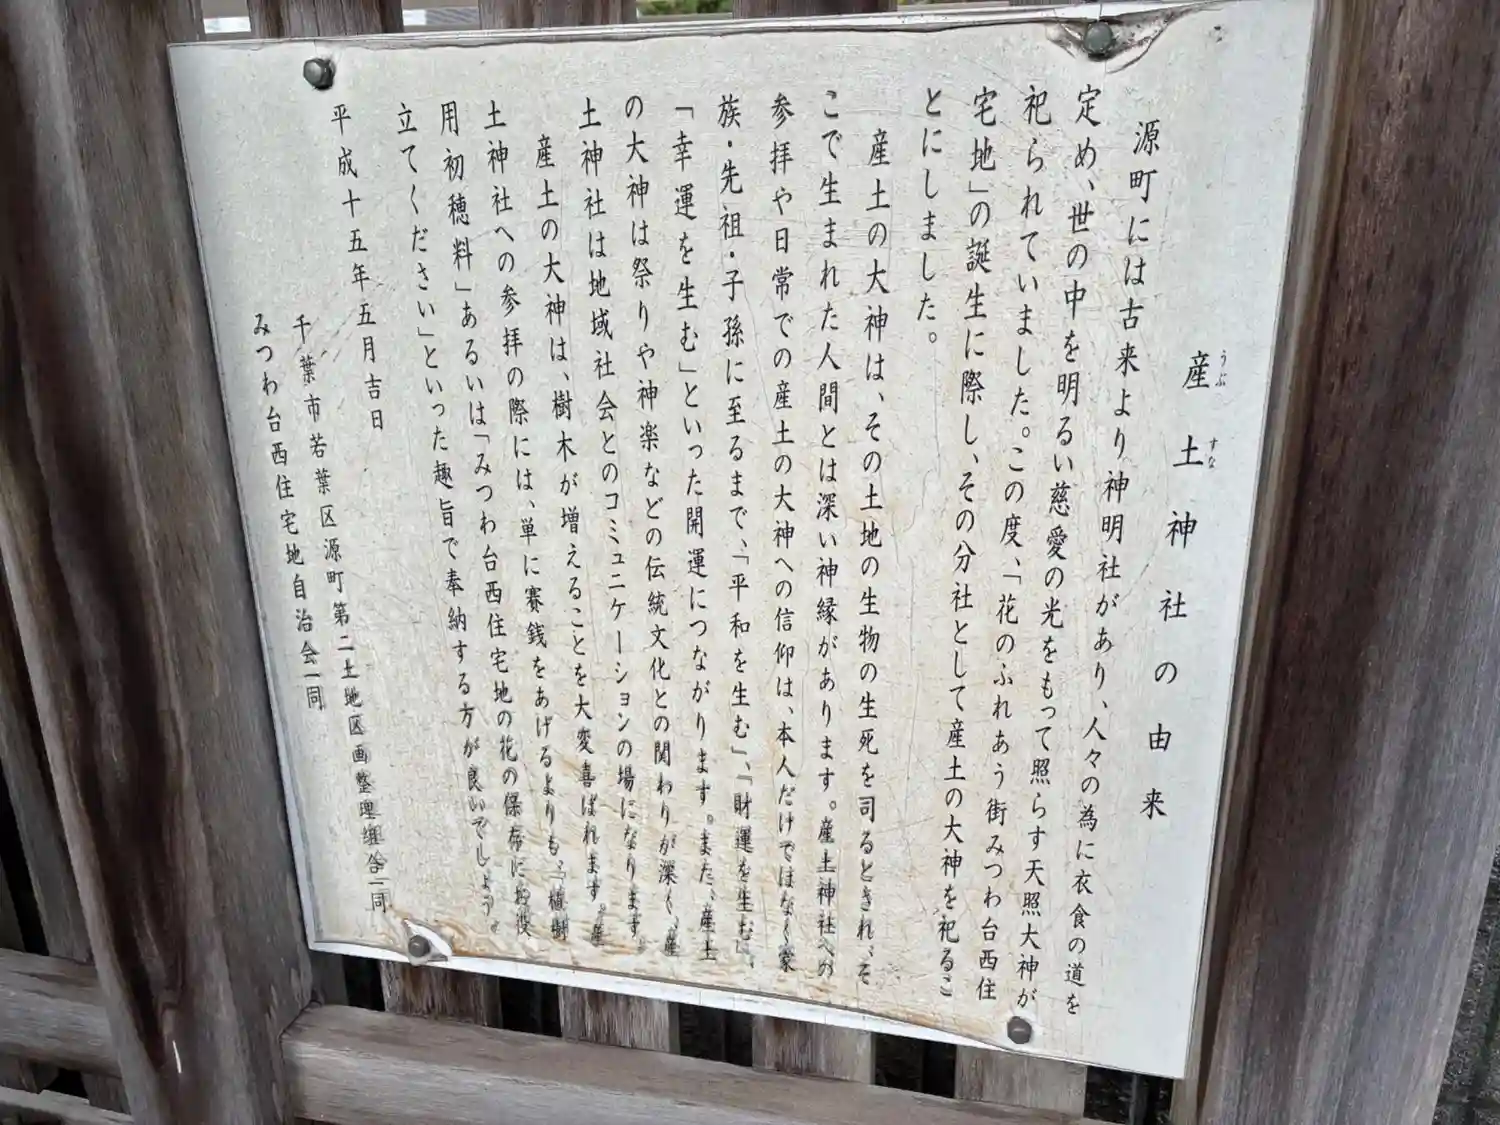 産土神社の由来
うぶ すな
源町には古来より神明社があり、人々の為に衣食の道を
定め、世の中を明るい慈愛の光をもって照らす天照大神が
祀られていました。この度、「花のふれあう街みつわ台西住
宅地」の誕生に際し、その分社として産土の大神を祀るこ
とにしました。
産土の大神は、その土地の生物の生死を司るとされ、そ
こで生まれた人間とは深い神縁があります。産土神社への
参拝や日常での産土の大神への信仰は、本人だけではなく家
族・先祖・子孫に至るまで、「平和を生む」、「財運を生む」、
「幸運を生む」といった開運につながります。また、産土
の大神は祭りや神楽などの伝統文化との関わりが深く、産
土神社は地域社会とのコミュニケーションの場になります。
産土の大神は、樹木が増えることを大変喜ばれます。産
土神社への参拝の際には、単に賽銭をあげるよりも、「植樹
用初穂料」あるいは「みつわ台西住宅地の花の保存にお役
立てください」といった趣旨で奉納する方が良いでしょう。
平成十五年五月吉日
千葉市若葉区源町第二土地区画整理組合一同
みつわ台西住宅地自治会一同